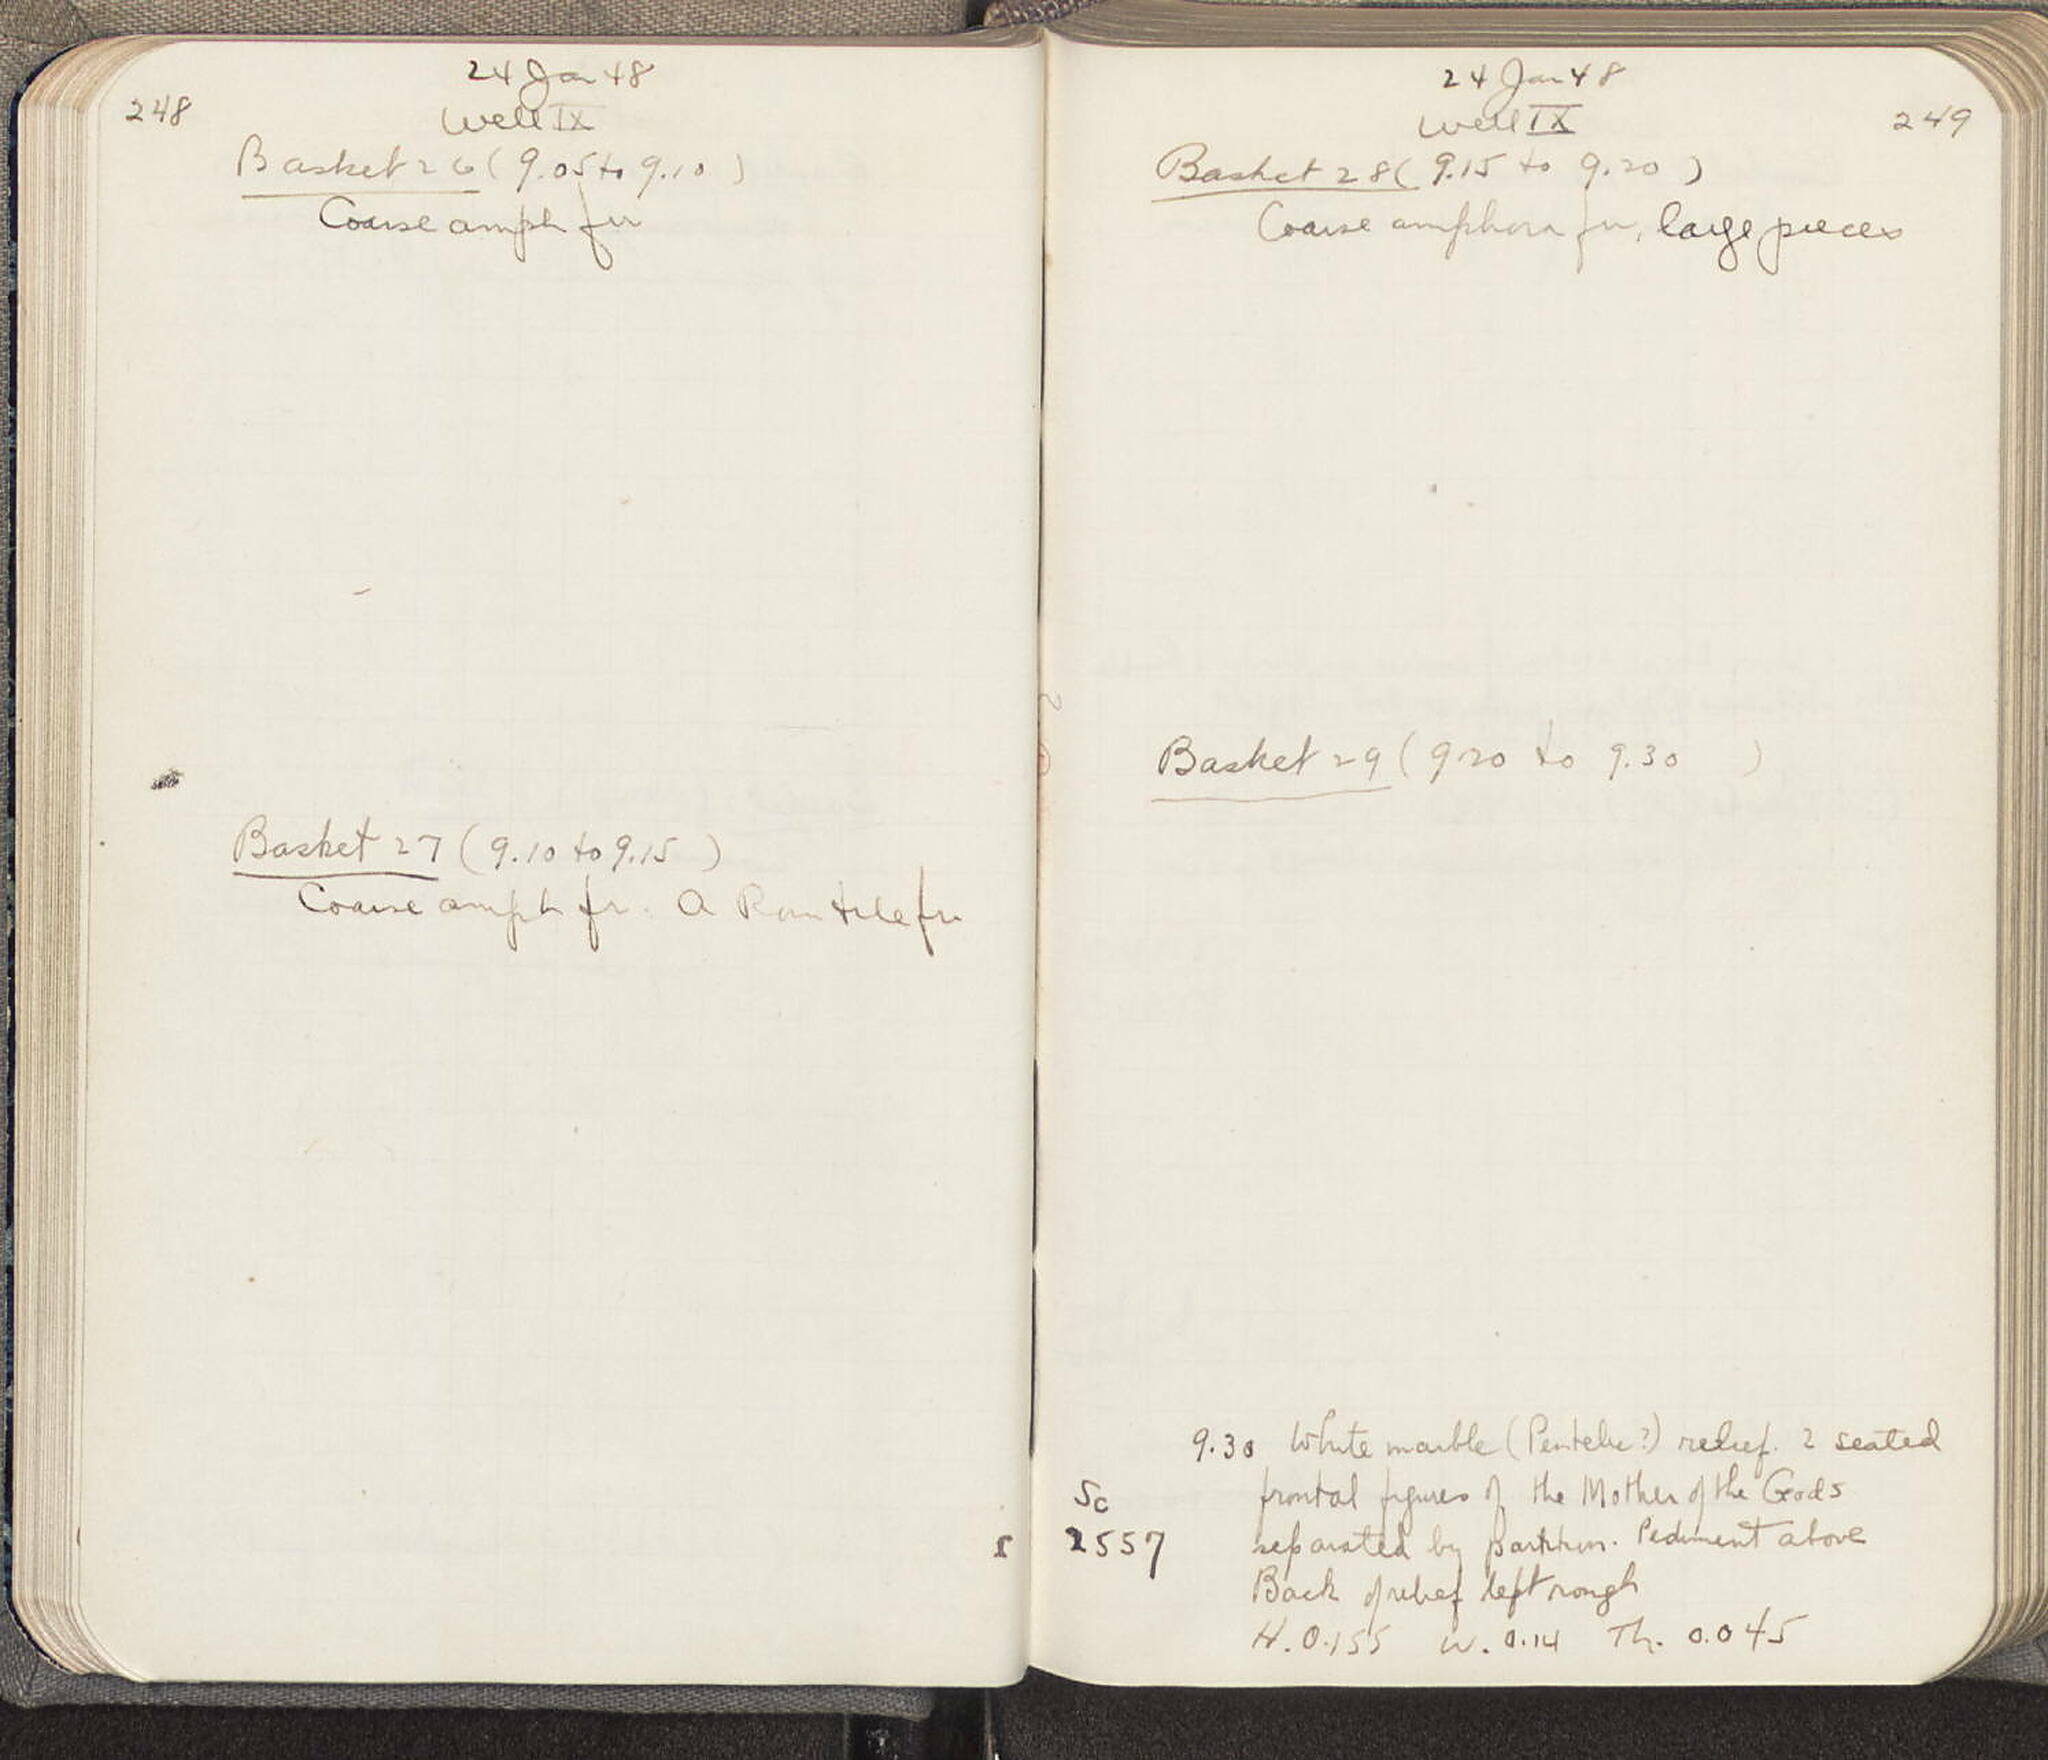 248
24 Jan 48
Well IX
Basket 26 (9.05 to 9.10)
Coarse amph fr
Basket 27 (9.10 to 9.15)
Coarse amph fr. A Rom tile fr
24 Jan 48
249
Well IX
Basket 28 (9.15 to 9.20)
Coarse amphora fr, large pieces
Basket 29 (9 20 to 9.30 )
9.30 White marble (Pentelic?) relief. 2 seated
frontal figures of the Mother of the Gods
separated by partition. Pediment above
Back of relief left rough
H. 0.155 W. 0.14 Th. 0.045
Sc
2557